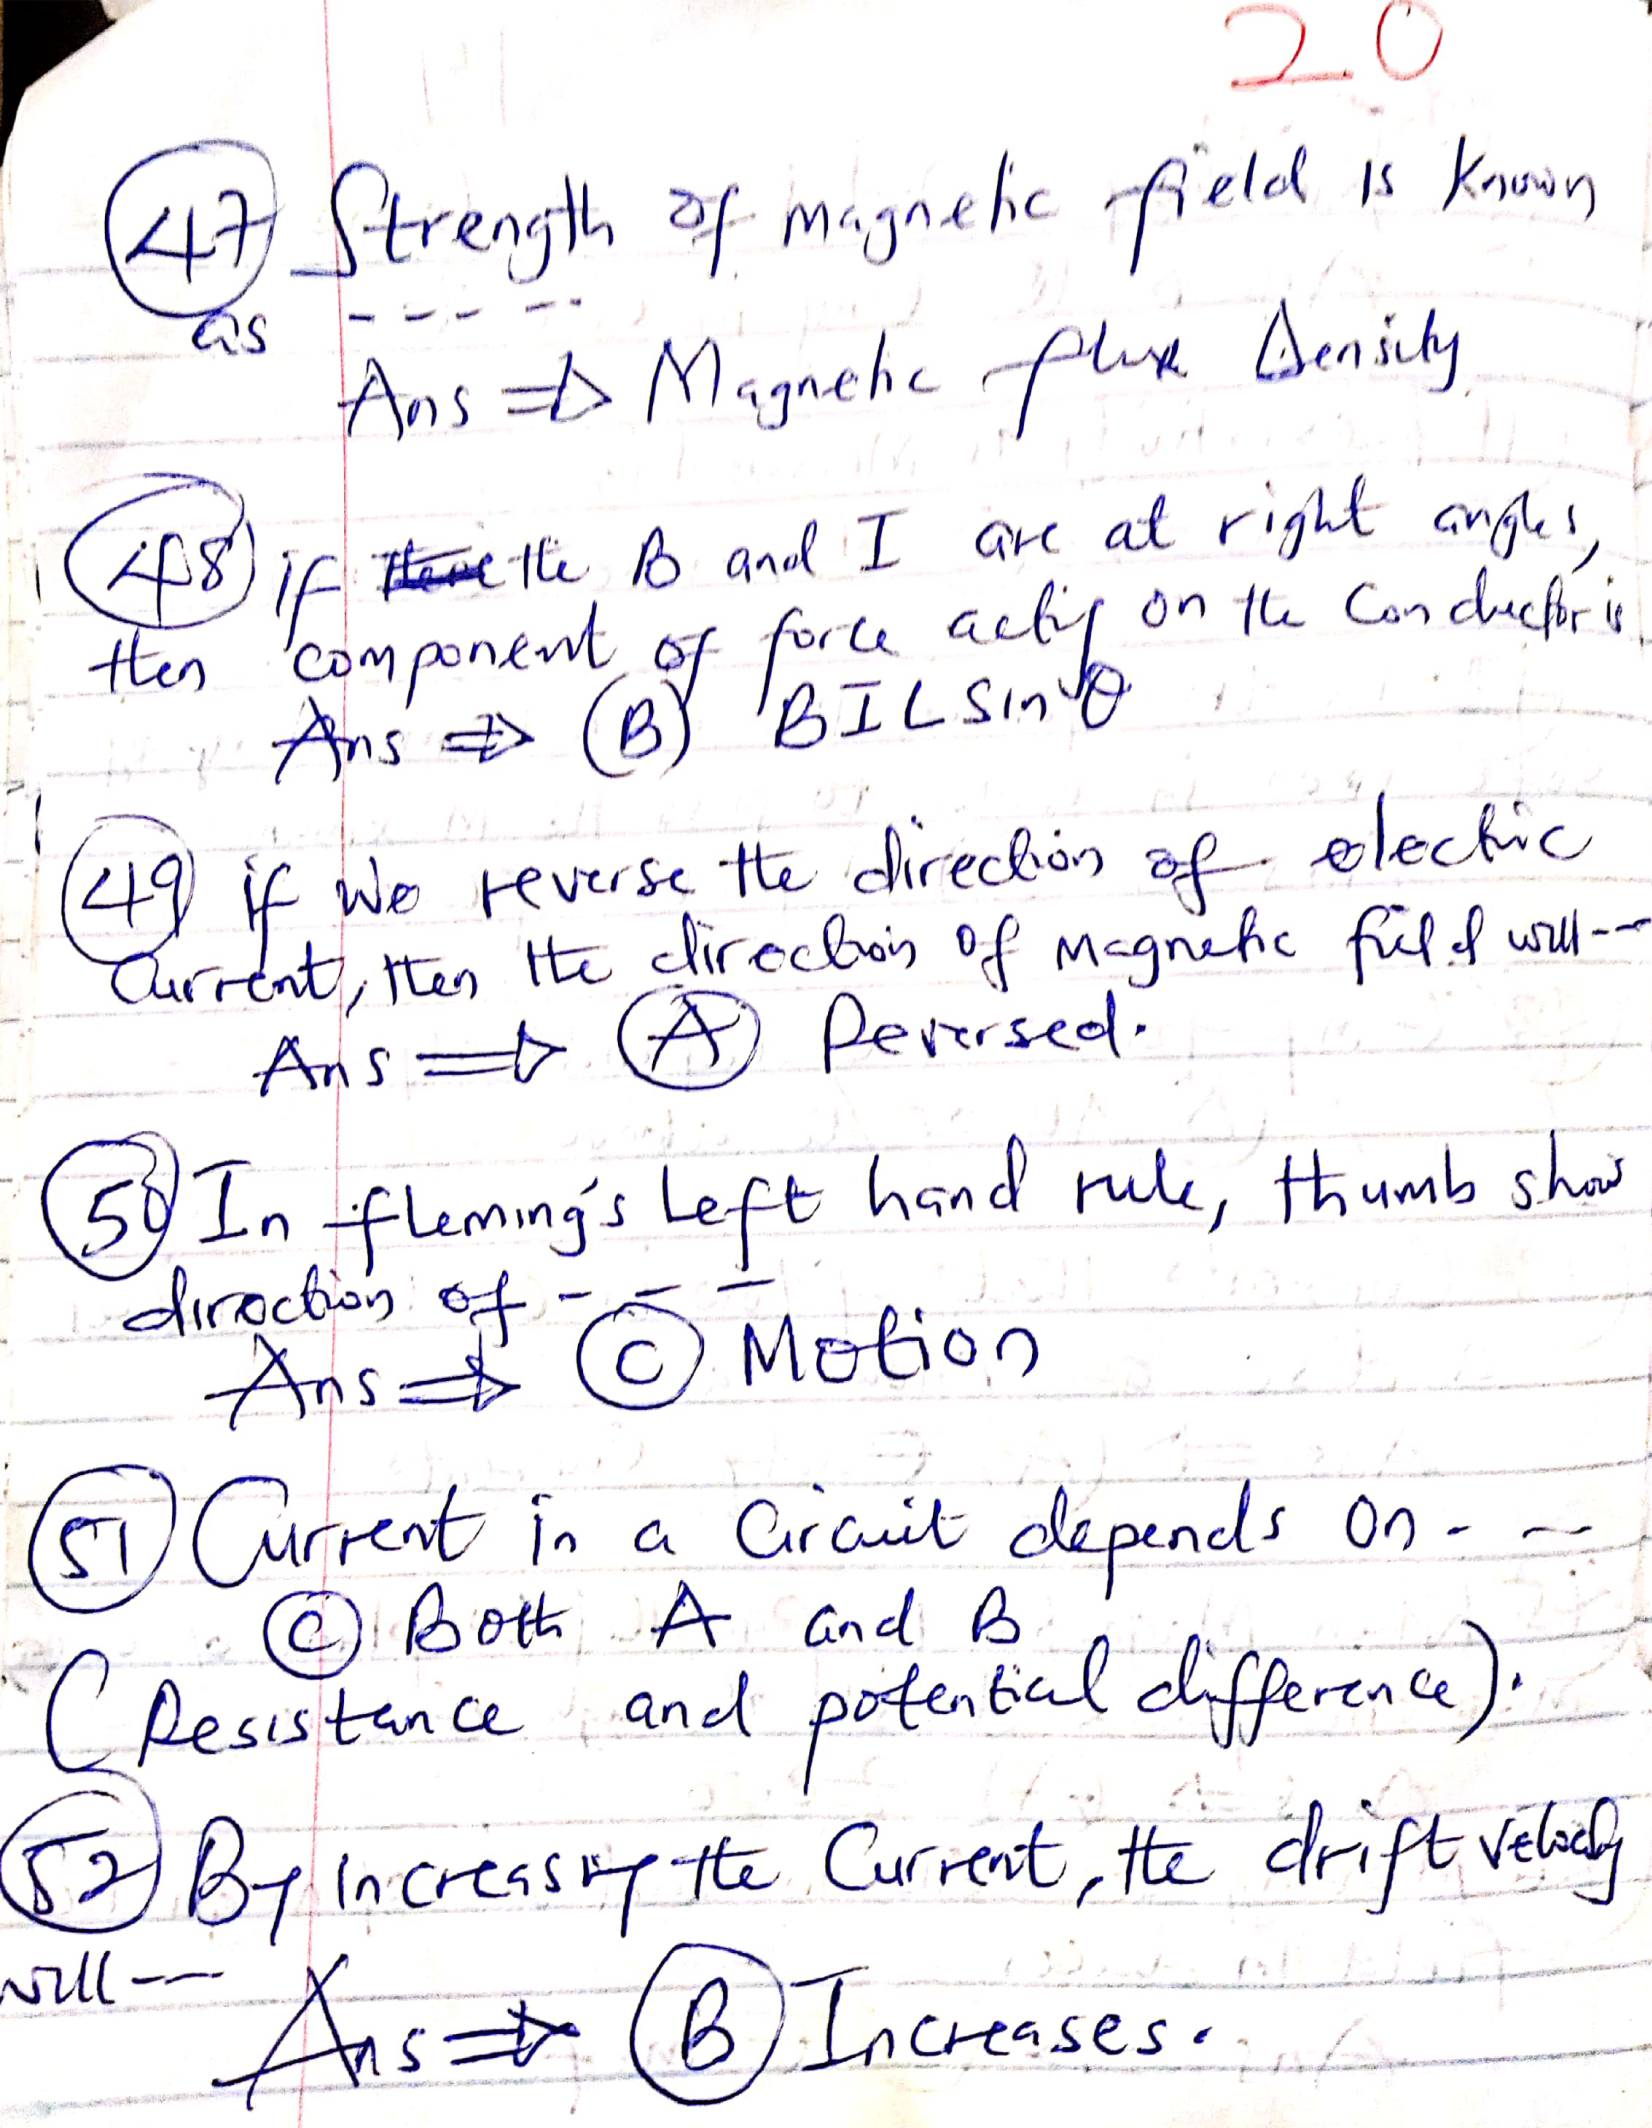 20
47 Strength of magnetic field is known
as - - - - -
Ans ⇒ Magnetic flux Density
48 if the B and I are at right angles,
then component of force acting on the Conductor is
Ans ⇒ (B) BILSinθ
49 if we reverse the direction of electric
Current, then the direction of magnetic field will --
Ans ⇒ (A) Reversed.
50 In fleming's Left hand rule, thumb show
direction of - - -
Ans ⇒ (C) Motion
51 Current in a Circuit depends on - --
(C) Both A and B
(Resistance and potential difference).
52 By increasing the Current, the drift velocity
will --
Ans ⇒ (B) Increases.